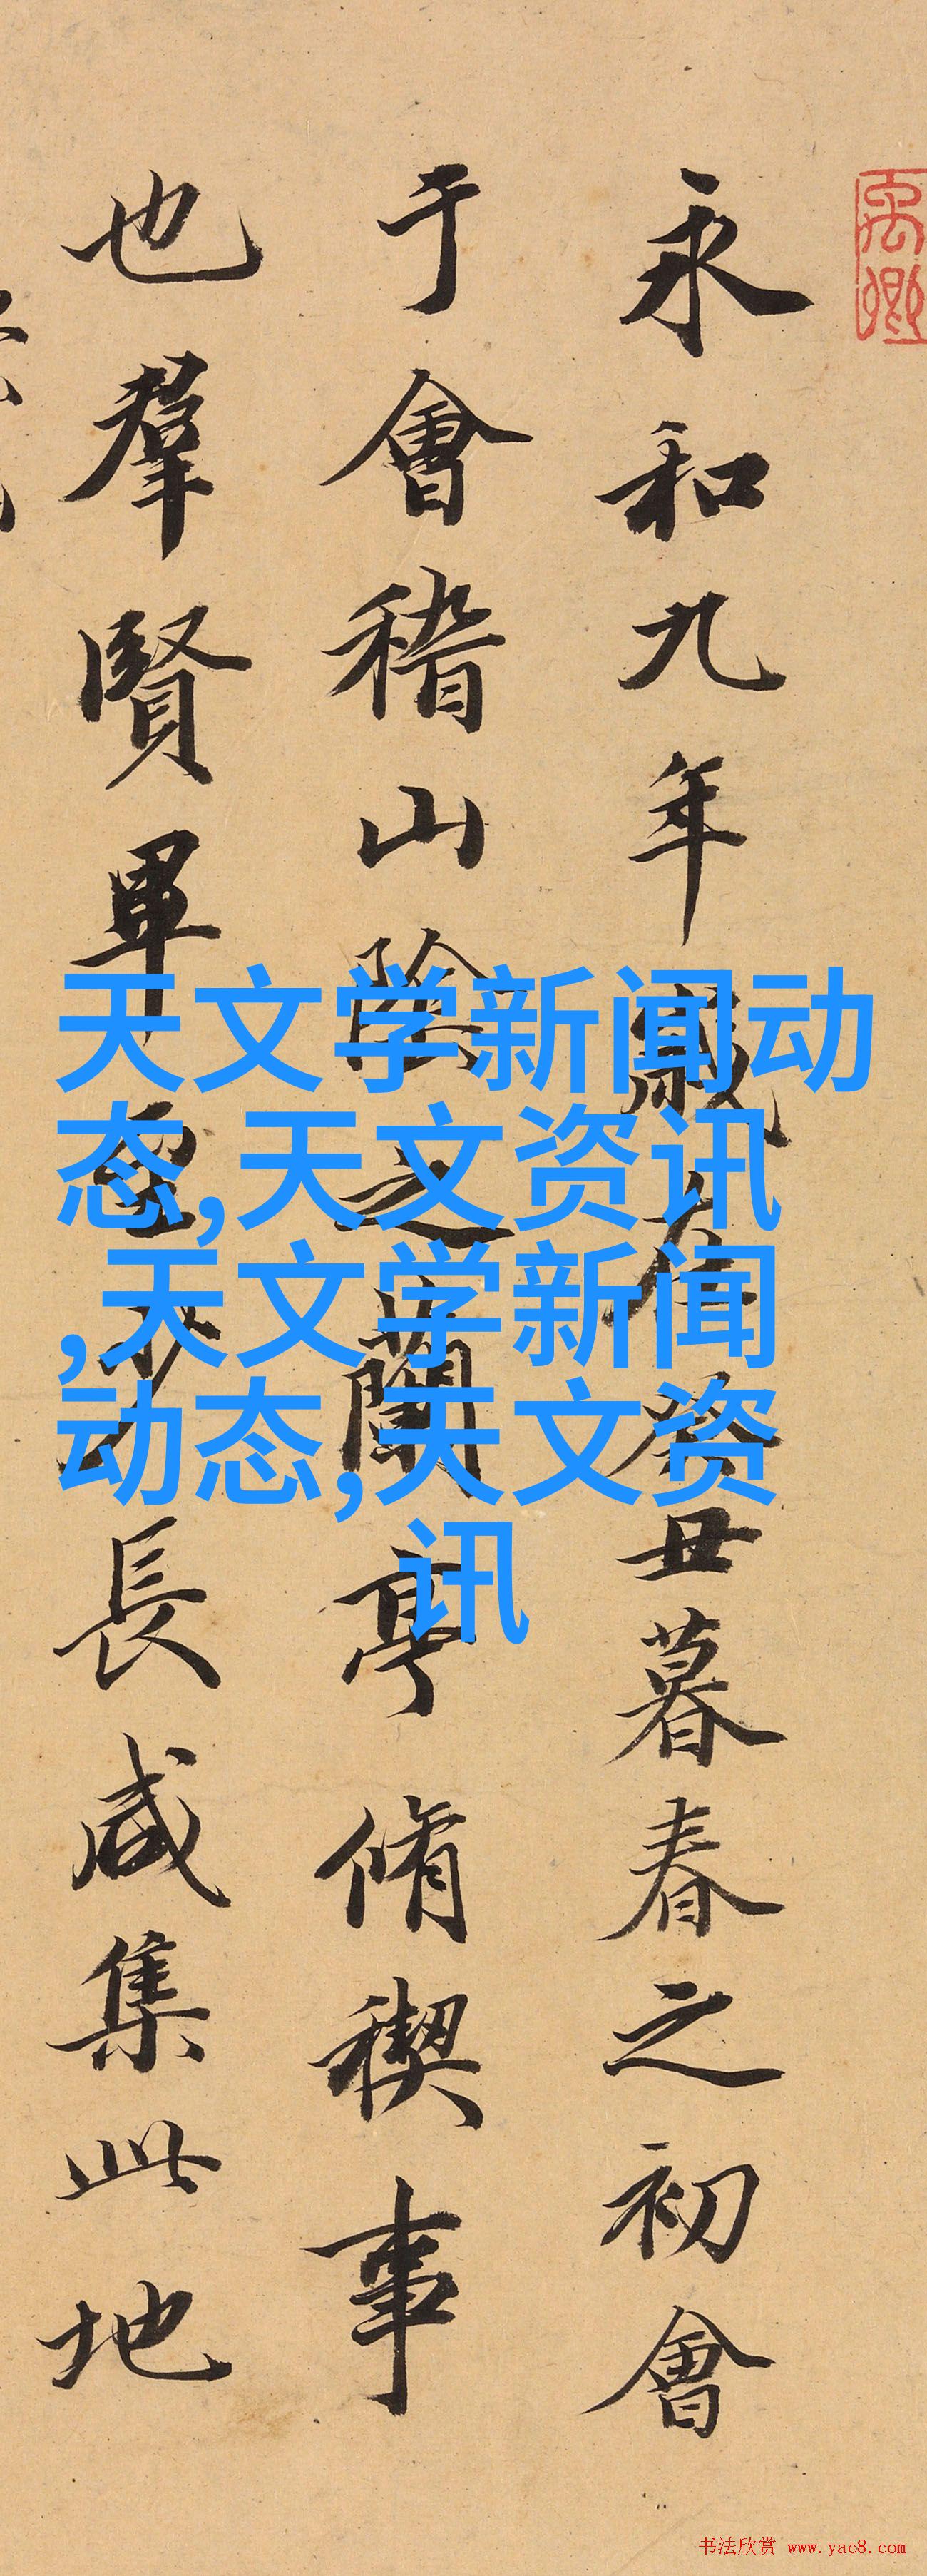 永和九年歲在癸丑暮春之初會
于會稽山陰之蘭亭脩稧事
也羣賢畢至少長咸集此地
天文学新闻动
态,天文资讯
,天文学新闻
动态,天文资
讯
书法欣赏 www.yac8.com